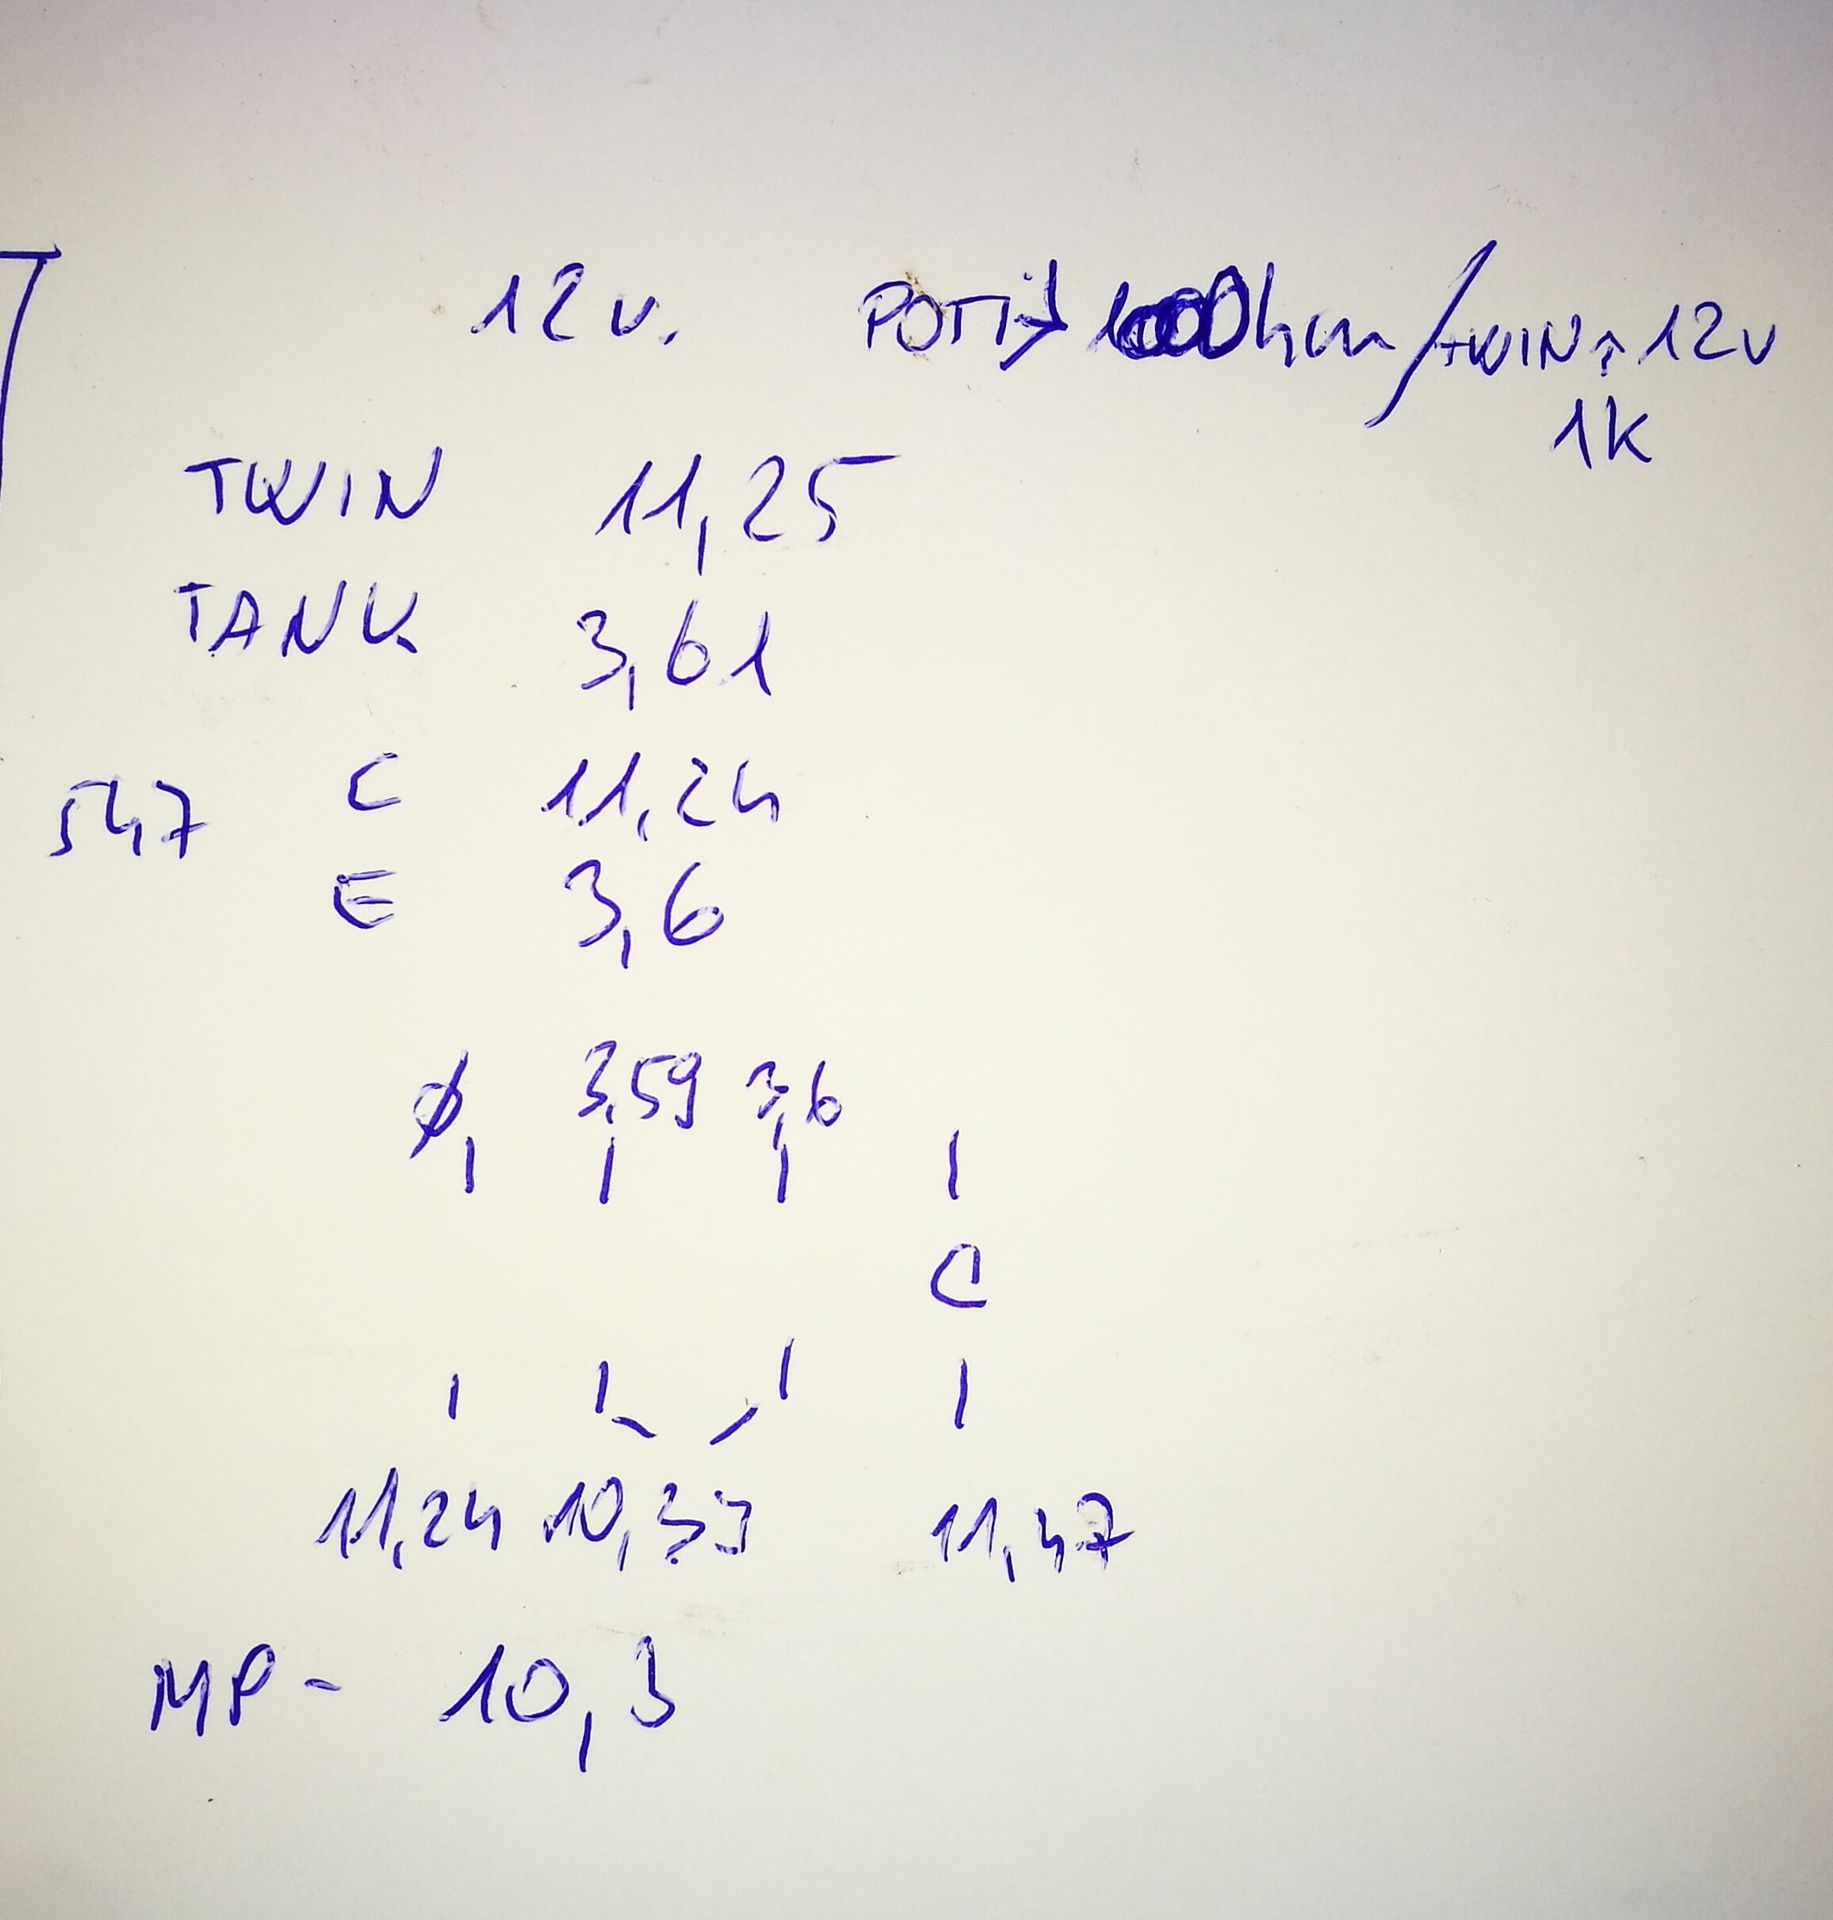 12v. POTI → Ohm / TWIN ↑ 12v
1K
TWIN 11,25
TANK 3,61
C 11,24
547
E 3,6
ø 3,59 3,6
C
11,24 10,33 11,47
MP - 10,3